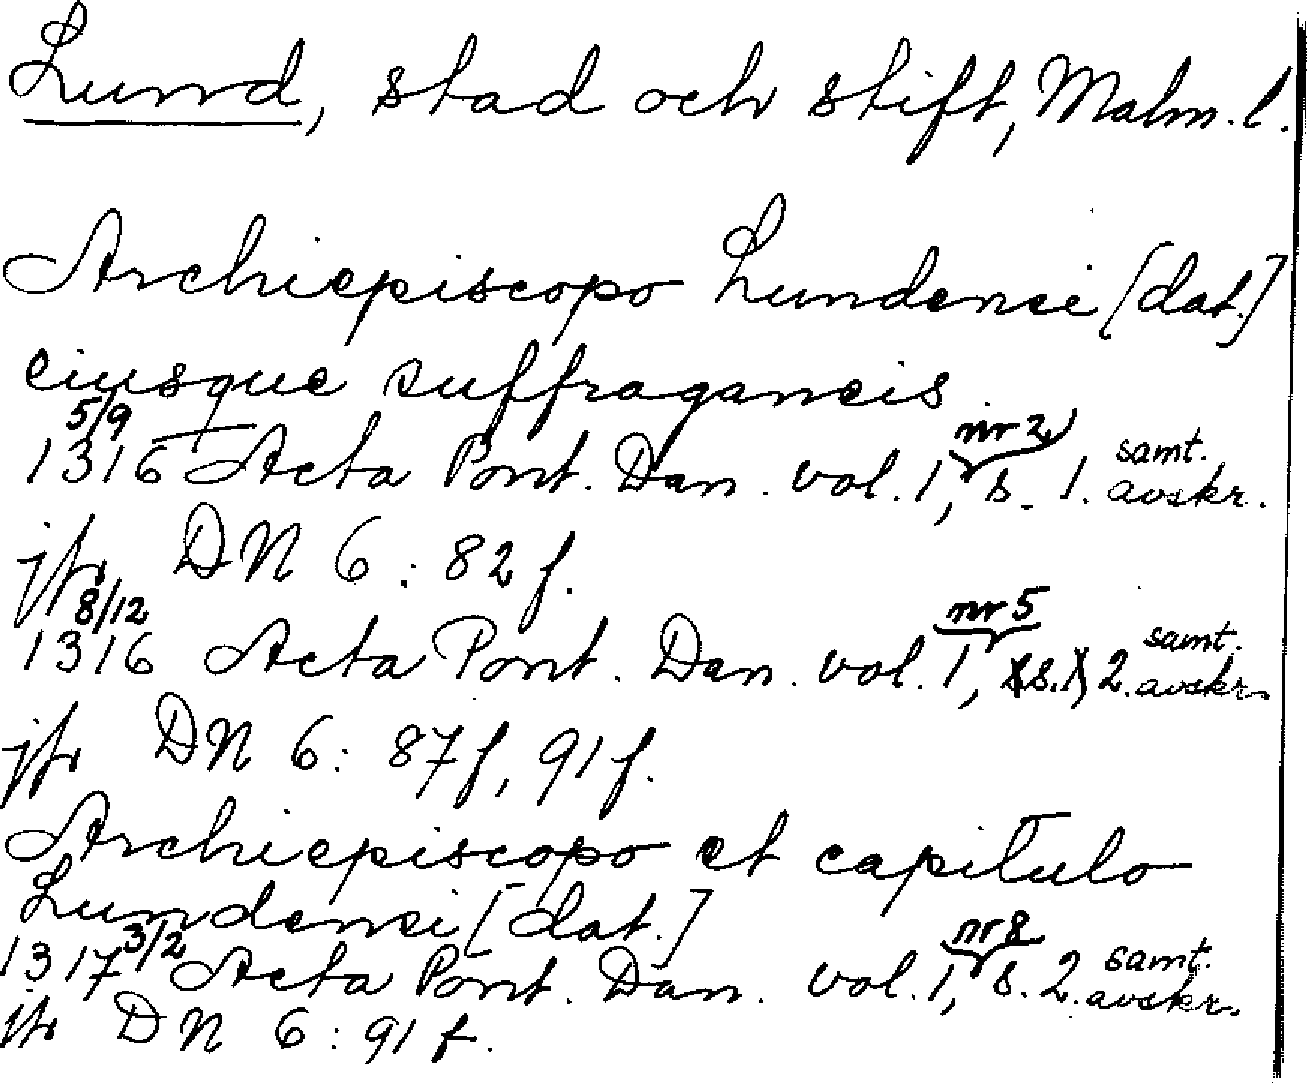 Lund, stad och stift, Malm. l.
Archiepiscopo Lundensi [dat.]
eiusque suffraganeis
1316 5/9 Acta Pont. Dan. vol. 1, nr 2, s. 1. samt. avskr.
jfr DN 6: 82 f.
1316 8/12 Acta Pont. Dan. vol. 1, nr 5 s. 2. samt. avskr.
jfr DN 6: 87 f, 91 f.
Archiepiscopo et capitulo
Lundensi [dat.]
1317 3/2 Acta Pont. Dan. vol. 1, nr 8 s. 2. samt. avskr.
jfr DN 6: 91 f.